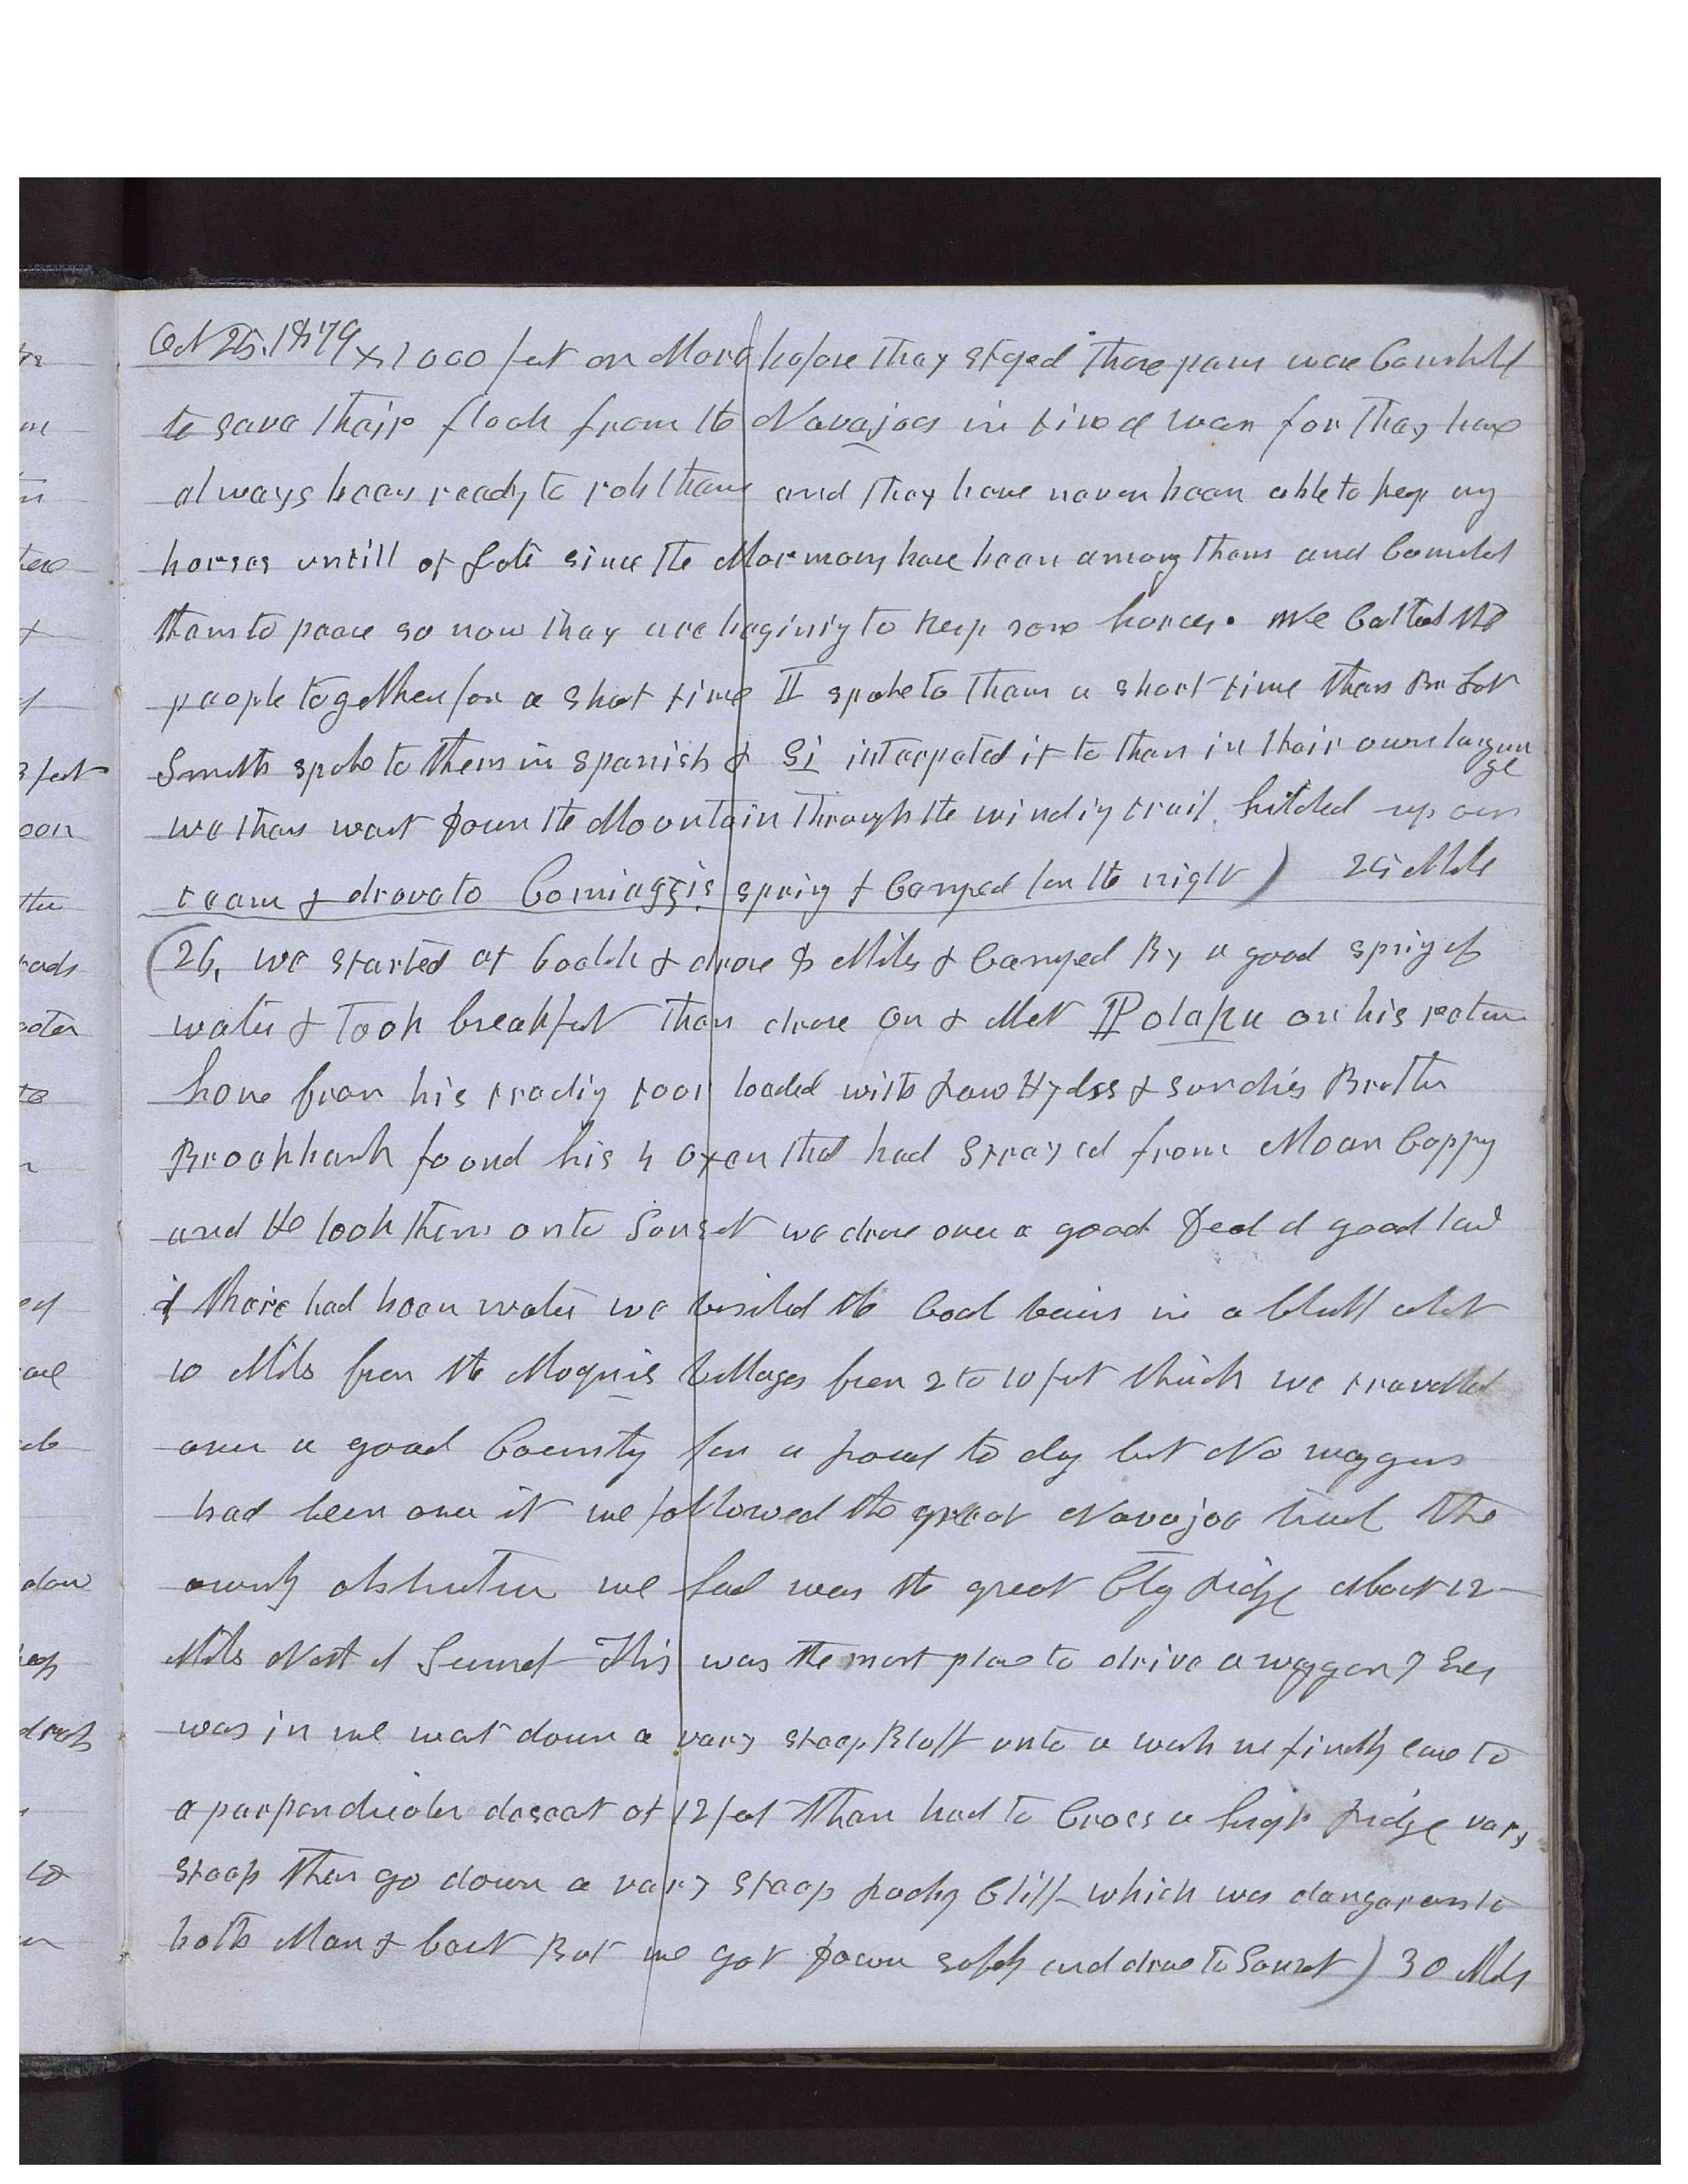 Oct 25, 1879 X 1000 feet or More before they stoped These pens were Compelled
to save their flock from the Navajoes in time of war for they have
always been ready to rob them and they have never been able to keep any
horses untill of Late since the Mormons have been among them and Counciled
them to peace so now they are begining to keep some horses. We Called the
people together for a short time I spoke to them a short time then Br Lot
Smith spoke to them in Spanish & Si interpeted it to them in their own languge
we then went down the Mountain through the winding trail hitched up our
team & drove to Comiaggis spring & Camped for the night) 25 Miles
(26, we started at 6 oclok & drove 8 Miles & Camped By a good spring of
water & took breakfast then drove on & Met Polaku on his return
home from his trading tour loaded with Raw Hydes & sundries Brother
Brookbank found his 4 oxen that had strayed from Moan Coppy
and He took them onto Sunset we drove over a good Deal of good land
if there had been water we visited the Coal veins in a bluff about
10 Miles from the Moquis Villages from 2 to 10 feet thick we travelled
over a good County for a road to day but No waggons
had been over it we followed the great Navajoe trail the
ownly obstruction we had was the great Clay Ridge about 12
Miles North of Sunset This was the worst place to drive a waggon I Ever
was in we went down a very steep Bluff onto a wash we finally came to
a perpendicular descent of 12 feet then had to Cross a high Ridge very
steep then go down a very steep Rocky Cliff which was dangerous to
both Man & beast But we got down safely and drove to Sunset) 30 Miles